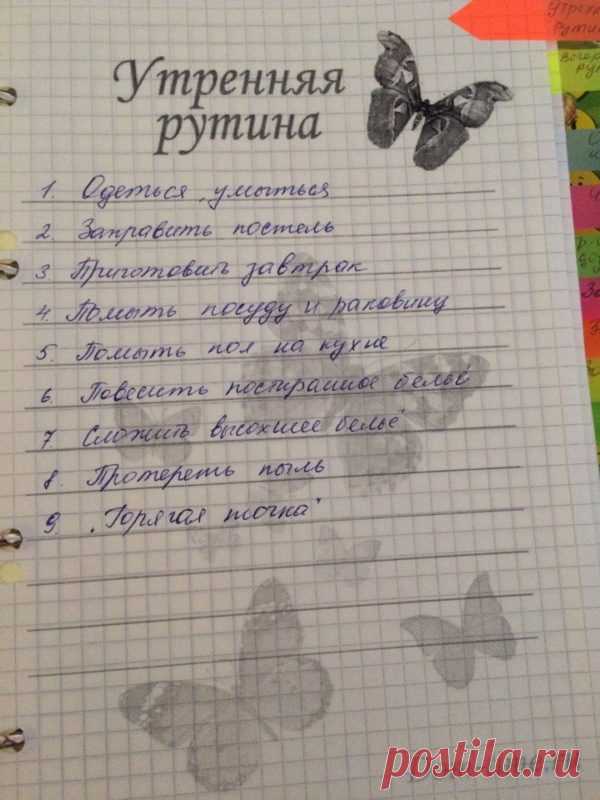 Утренняя
рутина
1. Одеться, умыться
2. Заправить постель
3. Приготовить завтрак
4. Помыть посуду и раковину
5. Помыть пол на кухне
6. Повесить постиранное бельё
7. Сложить высохшее бельё
8. Протереть пыль
9. „Горячая точка"
postila.ru